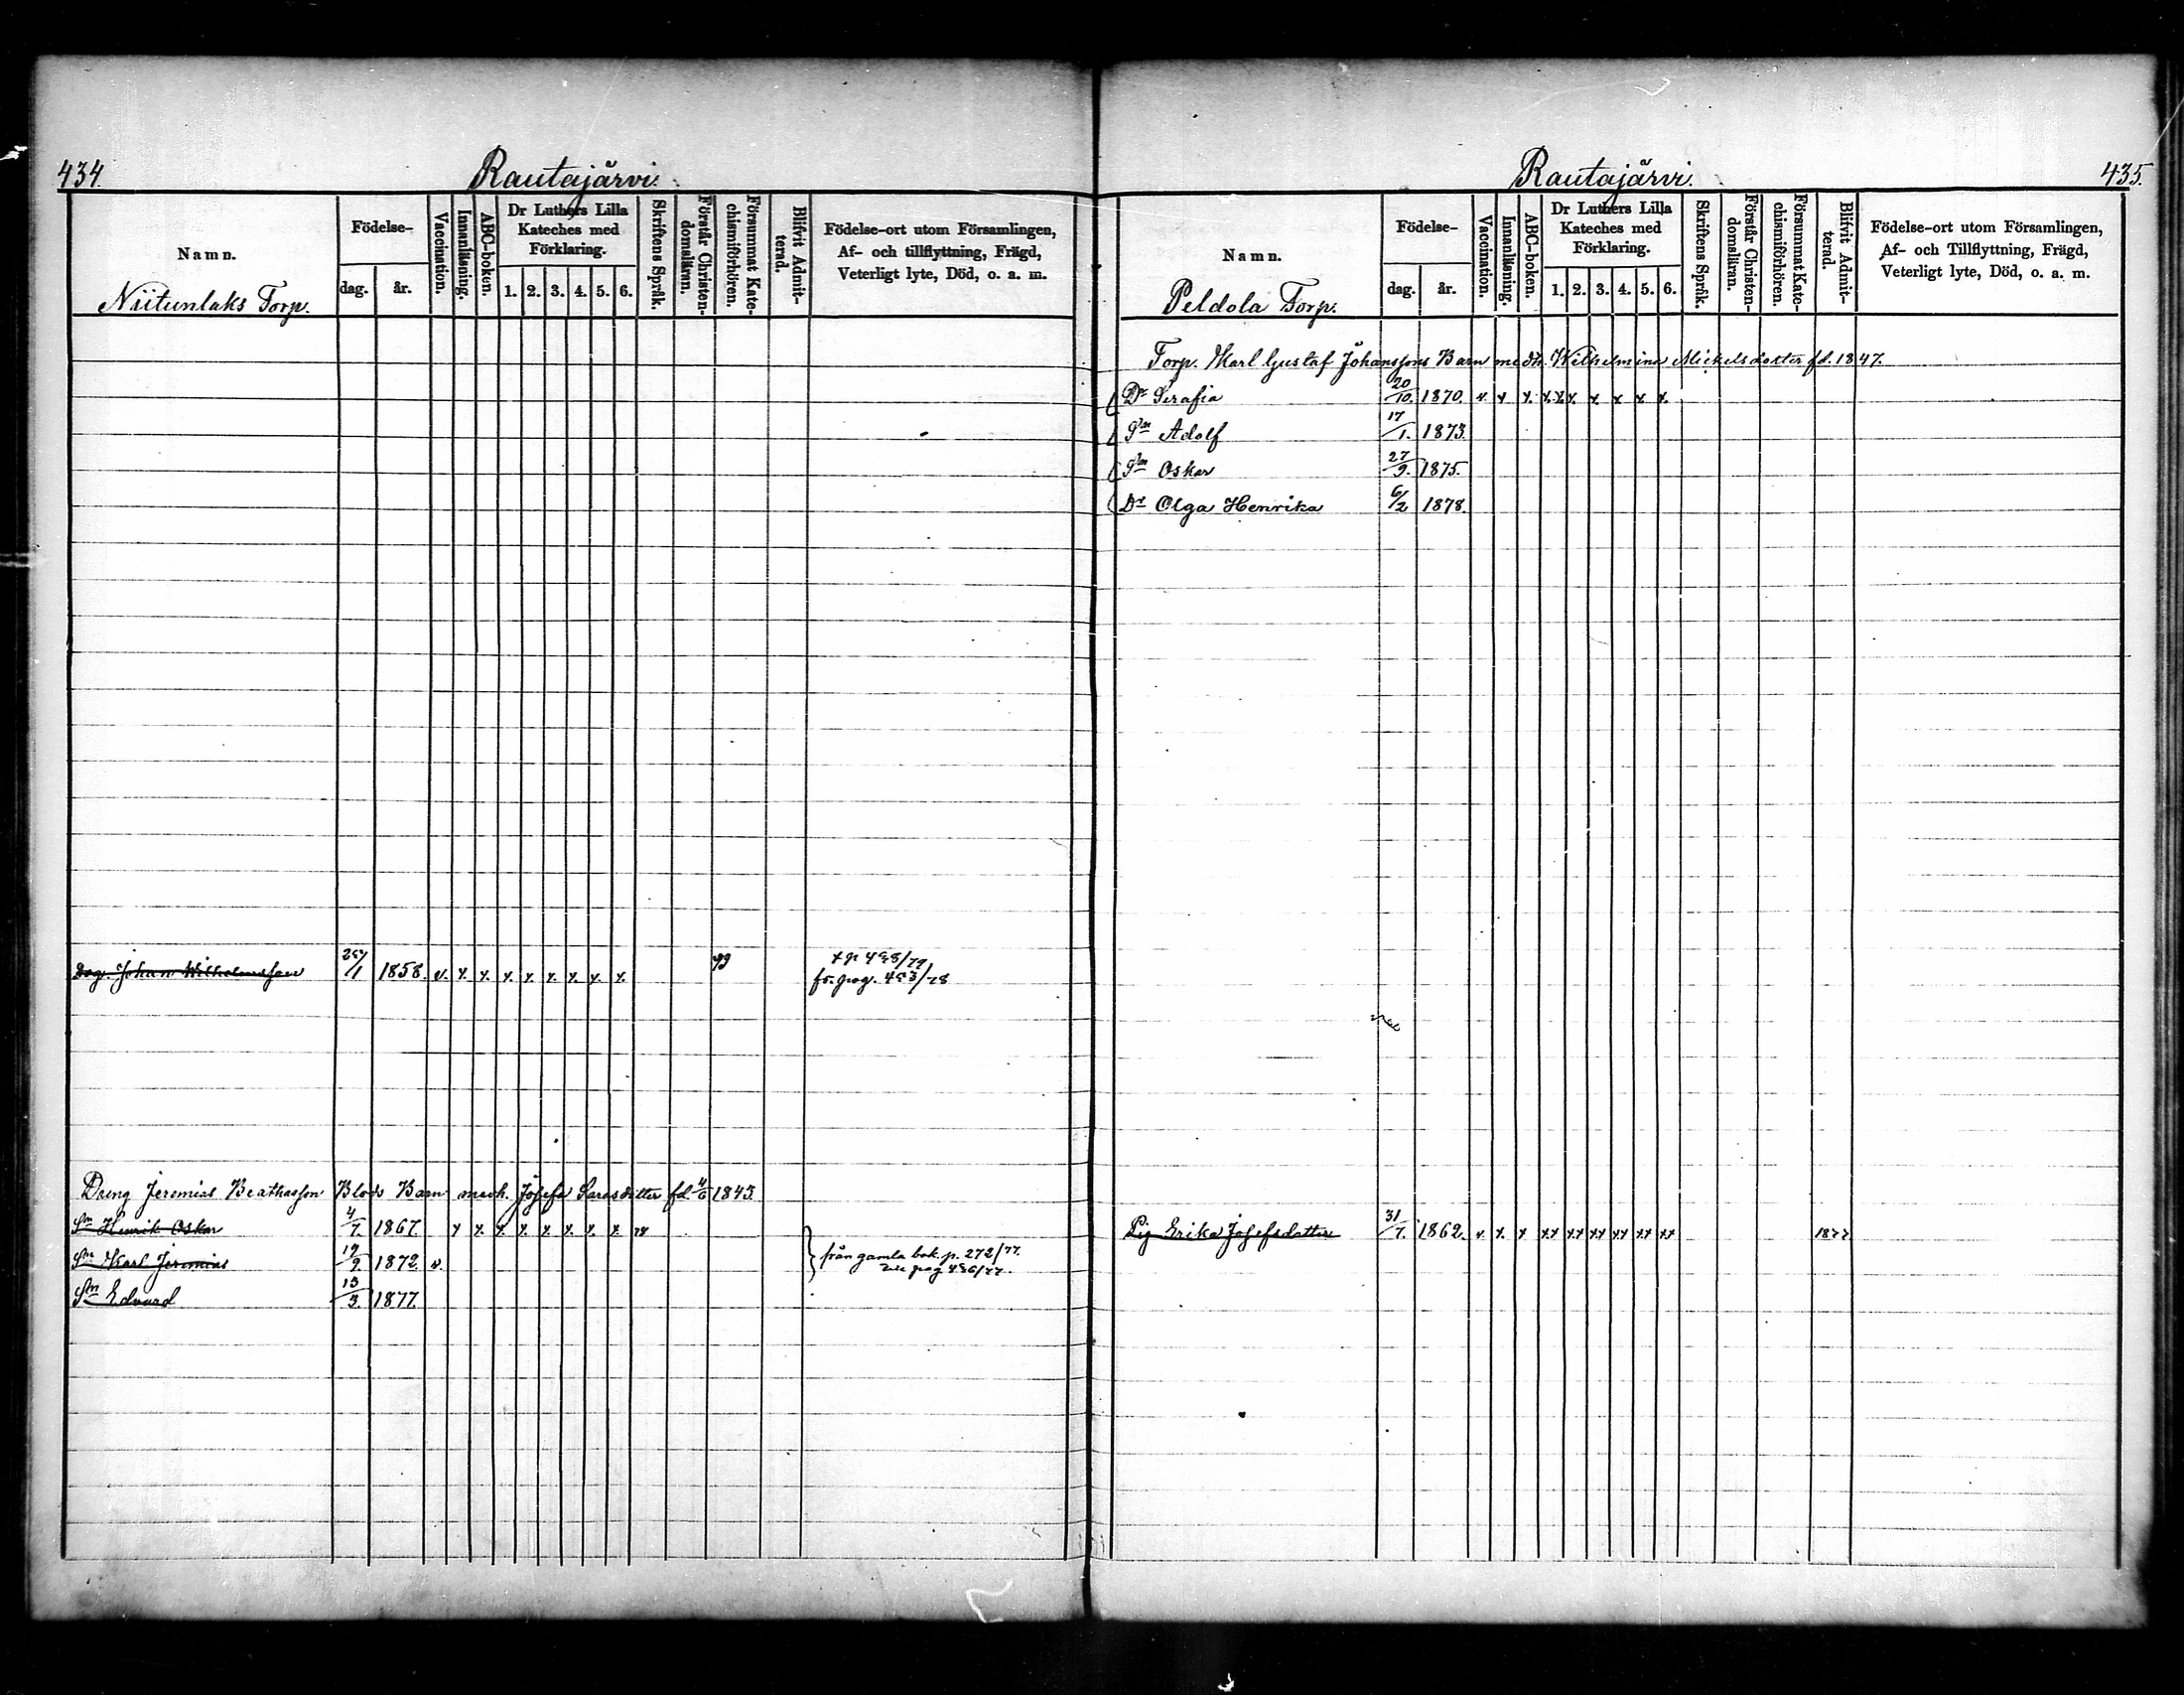 434.
Rautajärvi.
Namn.
Niitunlaks Torp.
Födelse-
dag. år.
Vaccination.
Innanläsning.
ABC-boken.
Dr Luthers Lilla
Kateches med
Förklaring.
1. 2. 3. 4. 5. 6.
Skriftens Språk.
Förstår Christen-
domsläran.
Försummat Kate-
chismiförhören.
Blifvit Admit-
terad.
Födelse-ort utom Församlingen,
Af- och tillflyttning, Frägd,
Veterligt lyte, Död, o. a. m.
Johan Wilhelmsson 1858. v. x. x. x. x. x. x. x. x. 79
fr. pag. 453/78
Dreng Jeremias Beathasson Blods Barn med h. Josefa Sarasdotter fd. 4/6 1843.
Sn Henrik Oskar 4/7. 1867. x x. x. x. x. x. x. x. 78
Sn Karl Jeremias 19/9. 1872. v.
från gamla bok. p. 272/77.
Sn Edvard 13/3. 1877.
435.
Rautajärvi.
Namn.
Peldola Torp.
Födelse-
dag. år.
Vaccination.
Innanläsning.
ABC-boken.
Dr Luthers Lilla
Kateches med
Förklaring.
1. 2. 3. 4. 5. 6.
Skriftens Språk.
Förstår Christen-
domsläran.
Försummat Kate-
chismiförhören.
Blifvit Admit-
terad.
Födelse-ort utom Församlingen,
Af- och Tillflyttning, Frägd,
Veterligt lyte, Död, o. a. m.
Torp. Karl Gustaf Johanssons Barn med h. Wilhelmina Mickelsdotter fd. 1847.
Dr Serafia 20/10. 1870. v. x x. x.x. x. x. x. x. x.
Sn Adolf 17/1. 1873.
Sn Oskar 27/9. 1875.
Dr Olga Henrika 6/2 1878.
Pig Erika Josefsdotter 31/7. 1862. v. x. x xx xx xx xx xx xx 1877